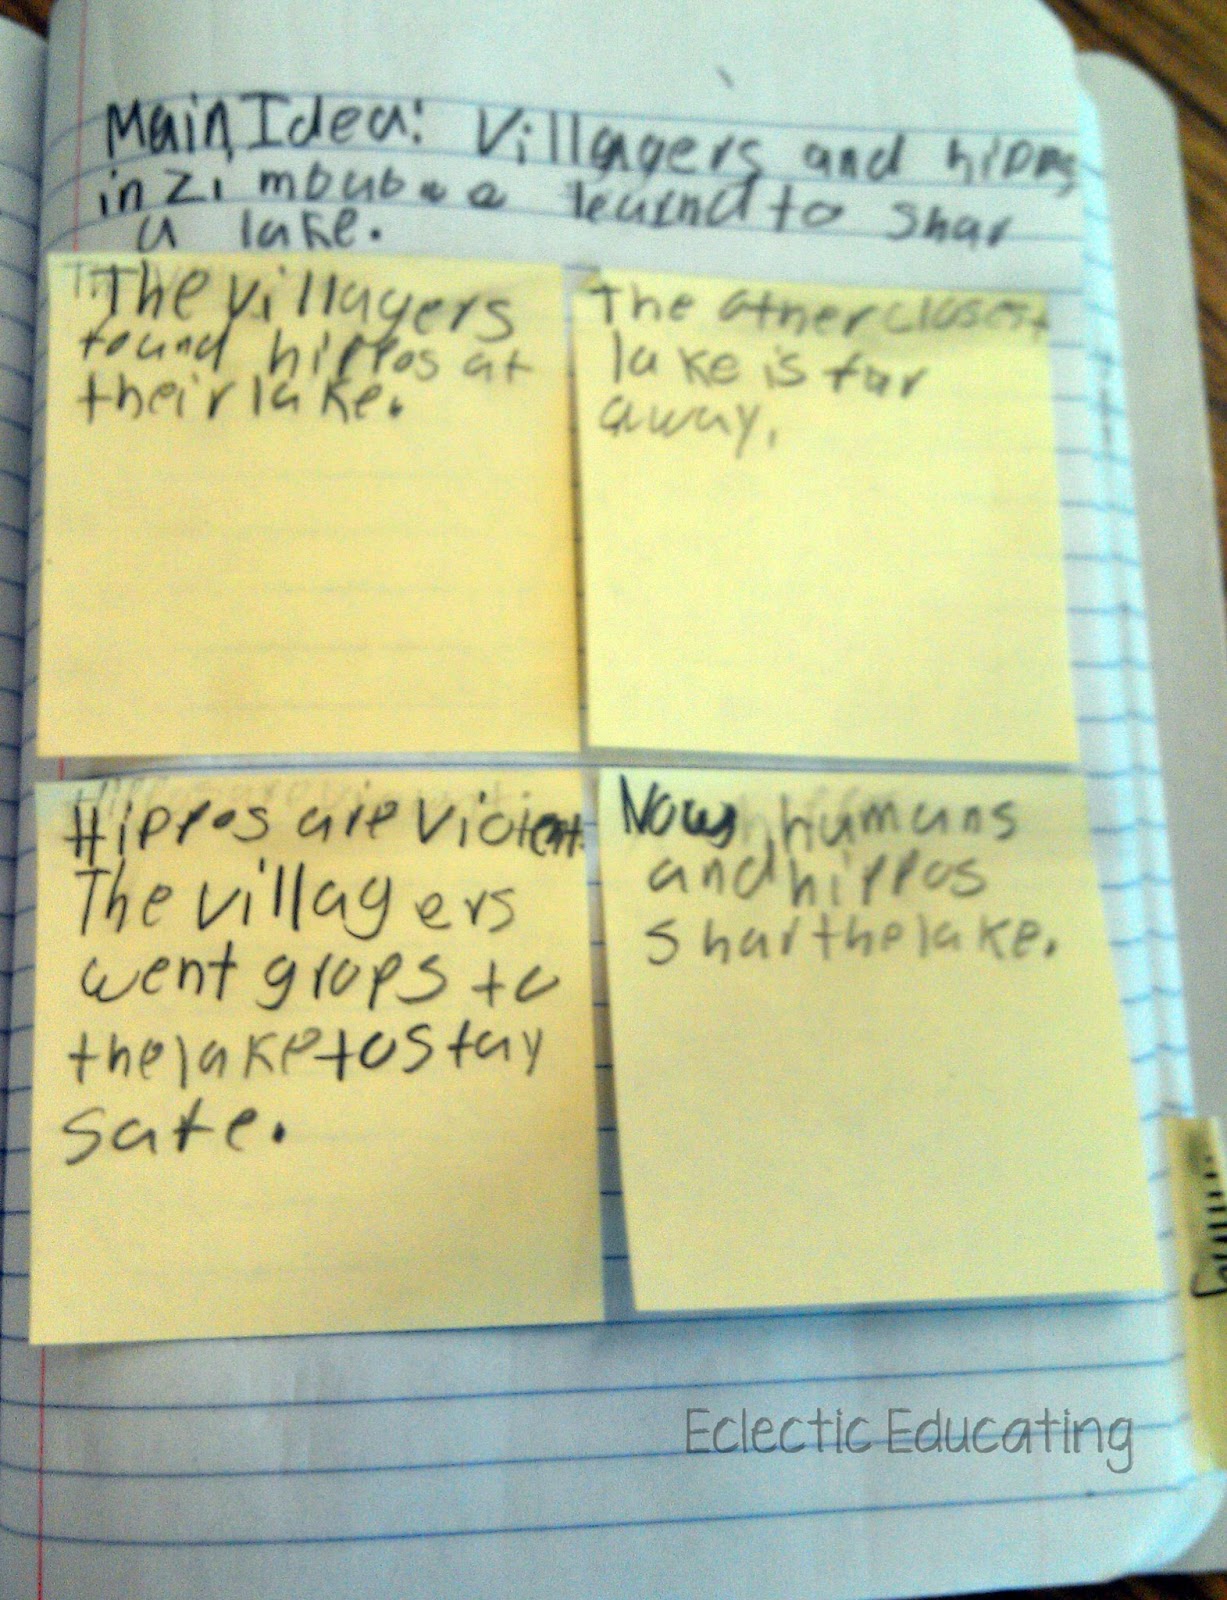 Main Idea: Villagers and hippos
in Zimbubee learnd to shar
a lake.
The villagers
found hippos at
their lake.
The other closest
lake is far
away.
Hippos are violent.
The villagers
went grops to
the lake to stay
safe.
Now, humans
and hippos
shar the lake.
Eclectic Educating